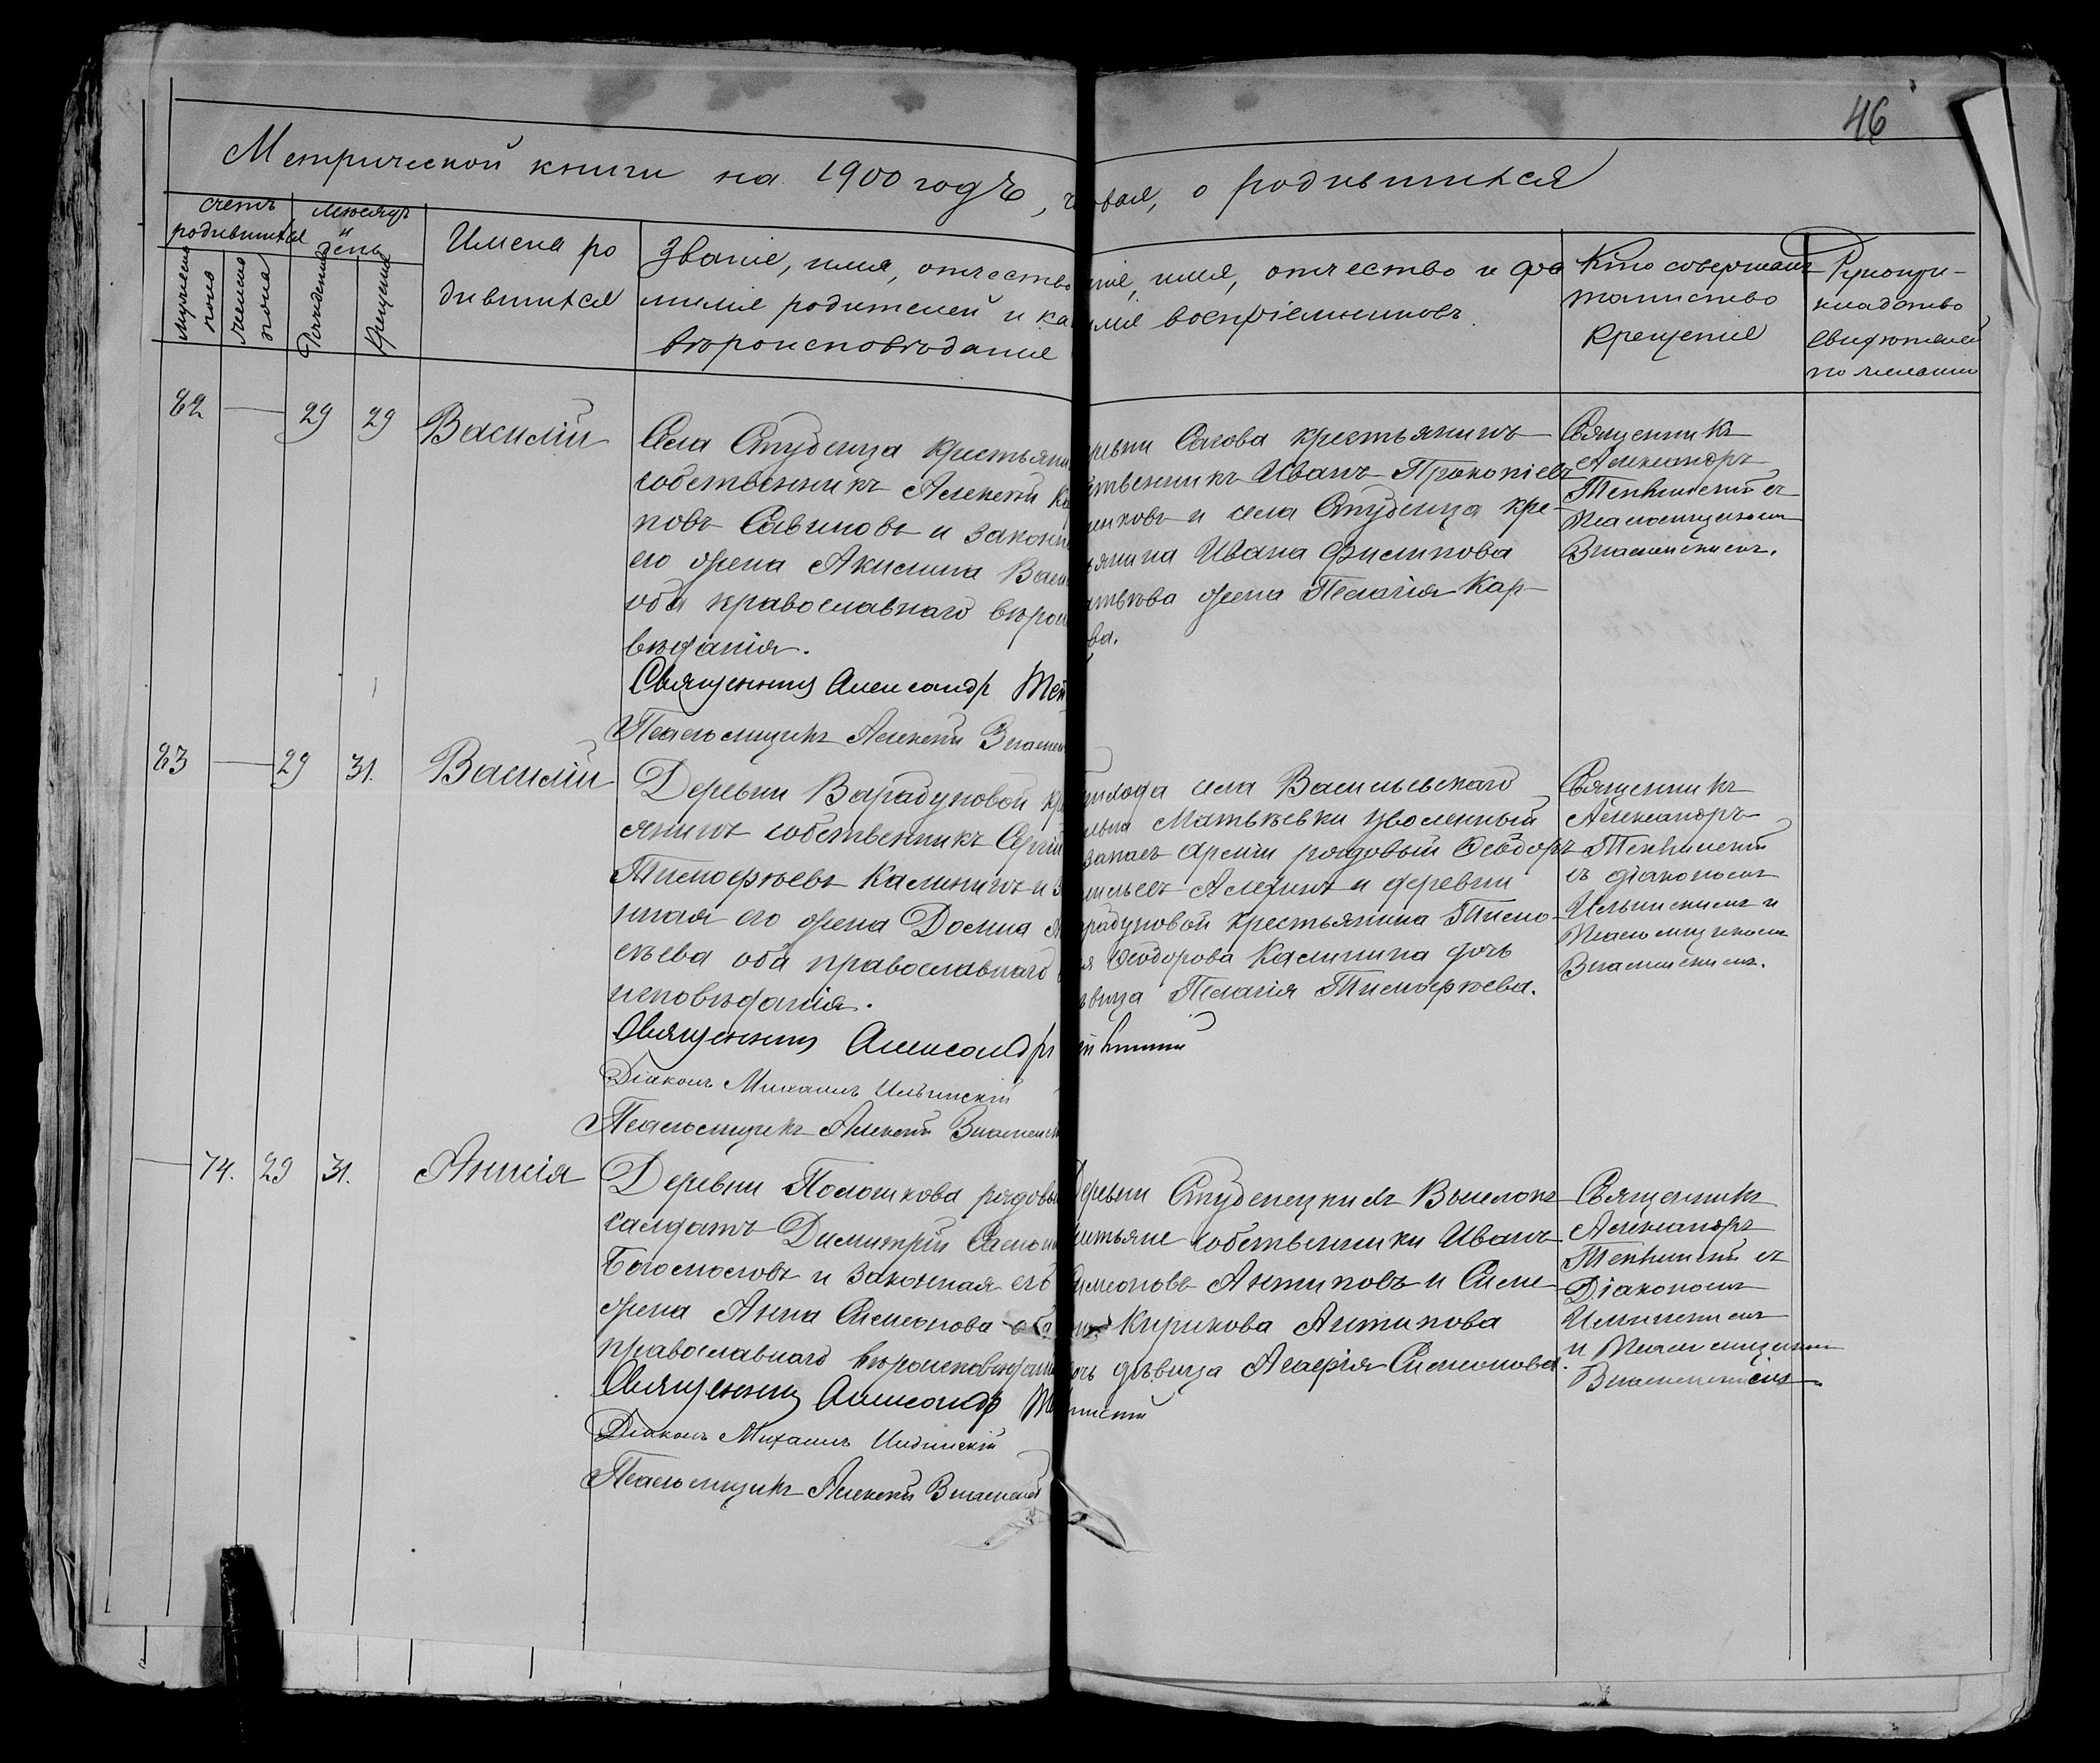 46
Метрической книги на 1900 годъ, ч
рвая, о родившихся
счетъ родившихся
мѣсяцъ и день
мужеска пола
женска пола
Рожденія
Крещенія
Имена ро
дившихся
Званіе, имя, отчество
милія родителей и ка
вѣроисповѣданія
ніе, имя, отчество и фа
милія воспріемниковъ
Кто совершалъ
таинство
крещенія
Рукопри-
кладство
свидѣтелей
по желанію
82
29
29
Василій
Села Студенца крестьяни
собственникъ Алексѣй Ка
повъ Савиновъ и законн
его жена Акилина Васи
оба православнаго вѣрои
вѣданія.
Священникъ Александръ Теп
Псаломщикъ Алексѣй Знамен
ревни Сагова крестьянинъ
ственникъ Иванъ Прокопіевъ
никовъ и села Студенца кре-
янина Ивана Филипова
тькова жена Пелагія Кар-
ва.
Священникъ
Александръ
съ
псаломщикомъ
Знаменскимъ.
83
29
31.
Василій
Деревни Варадуновой кр
янинъ собственникъ Сергій
Тимофѣевъ Калининъ и з
нная его жена Домна А
сѣева оба православнаго в
исповѣданія.
Священникъ Александръ
Діаконъ Михаилъ Ильинскій
Псаломщикъ Алексѣй Знаменск
прихода села Васильевскаго
Матвѣевки уволенный
запасъ арміи рядовый Ѳеодоръ
сильевъ Алехинъ и деревни
радуновой крестьянина Тимо-
я Ѳеодорова Калинина дочь
вица Пелагія Тимофѣева.
Священникъ
Александръ
съ діакономъ
Ильинскимъ и
псаломщикомъ
Знаменскимъ.
74.
29
31.
Анисія
Деревни Полошкова рядовы
салдатъ Димитрій Симон
Богомоловъ и законная его
жена Анна Симеонова оба
православнаго вѣроисповѣдані
Священникъ Александръ
Діаконъ Михаилъ Ильинскій
Псаломщикъ Алексѣй Знаменскій
Деревни Студенецкихъ Выселокъ
стьяне собственники Иванъ
Симеоновъ Антиповъ и Симе-
Кирикова Антипова
очь дѣвица Агафія Симеонова.
Священникъ
Александръ
съ
Діакономъ
Ильинскимъ
и Псаломщикомъ
Знаменскимъ